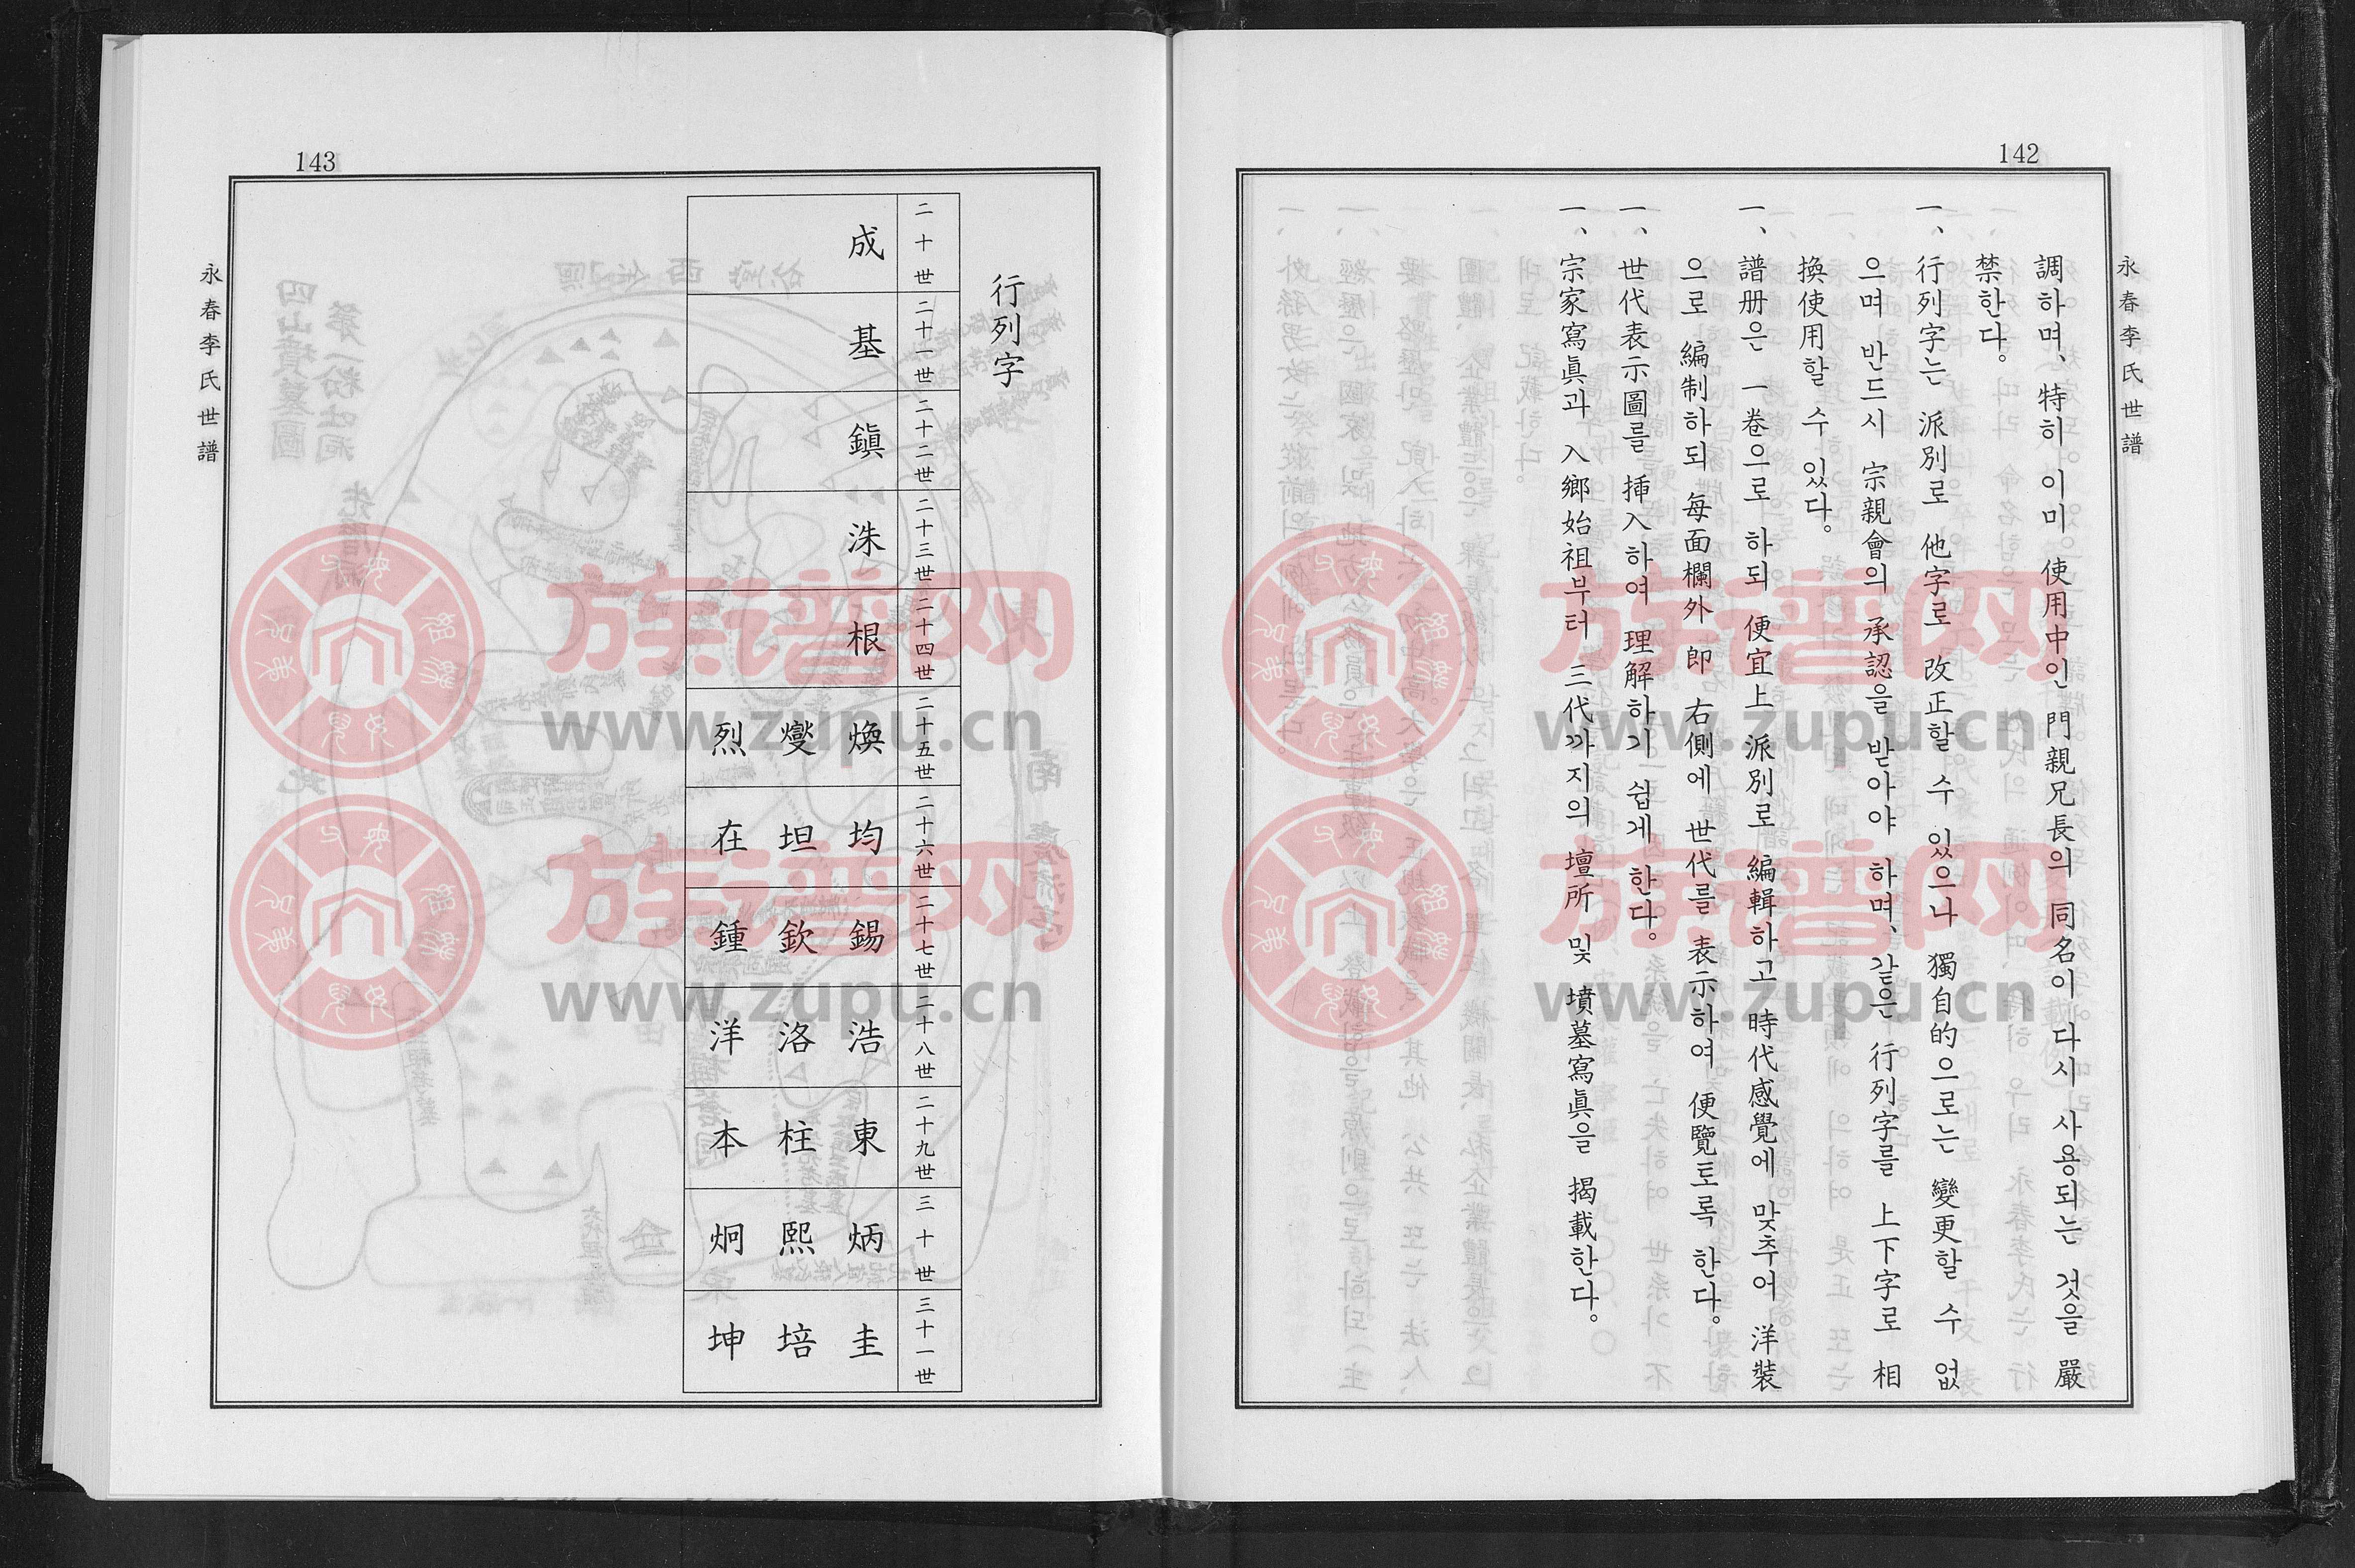 142
永春李氏世譜
調하며、特히 이미 使用中인 門親兄長의 同名이 다시 사용되는 것을 嚴
禁한다。
一、行列字는 派別로 他字로 改正할 수 있으나 獨自的으로는 變更할 수 없
으며 반드시 宗親會의 承認을 받아야 하며、같은 行列字를 上下字로 相
換使用할 수 있다。
一、譜册은 一卷으로 하되 便宜上 派別로 編輯하고 時代感覺에 맞추어 洋裝
으로 編制하되 每面欄外 即 右側에 世代를 表示하여 便覽토록 한다。
一、世代表示圖를 揷入하여 理解하기 쉽게 한다。
一、宗家寫眞과 入鄕始祖부터 三代까지의 壇所 및 墳墓寫眞을 揭載한다。
143
行列字
二十世 成
二十一世 基
二十二世 鎭
二十三世 洙
二十四世 根
二十五世 煥 燮 烈
二十六世 均 坦 在
二十七世 錫 欽 鍾
二十八世 浩 洛 洋
二十九世 東 柱 本
三十世 炳 熙 炯
三十一世 圭 培 坤
永春李氏世譜
族谱网
www.zupu.cn
族谱网
www.zupu.cn
族谱网
www.zupu.cn
族谱网
www.zupu.cn